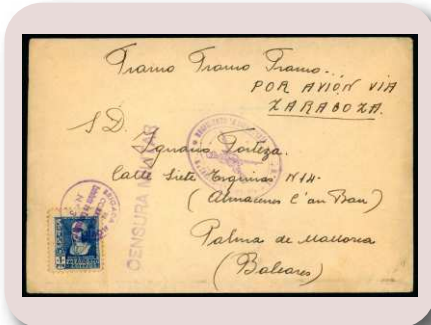 Tramo Tramo Tramo...
POR AVIÓN VIA
ZARAGOZA.
S D.
Ignacio Forteza.
Calle Siete Esquinas Nº 14-
(Almacenes C'an Bau)
Palma de Mallorca
(Baleares)
CENSURA MILITAR